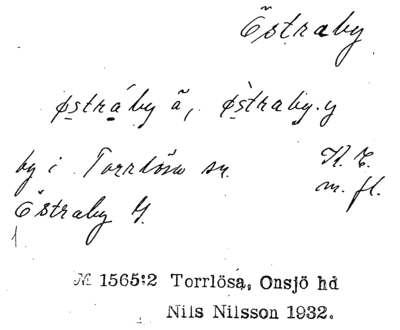 Östraby
østráby ã, østraby. y
by i Torrlösa sn.
K. E.
m. fl.
Östraby G.
1.
M 1565:2 Torrlösa, Onsjö hd
Nils Nilsson 1932.